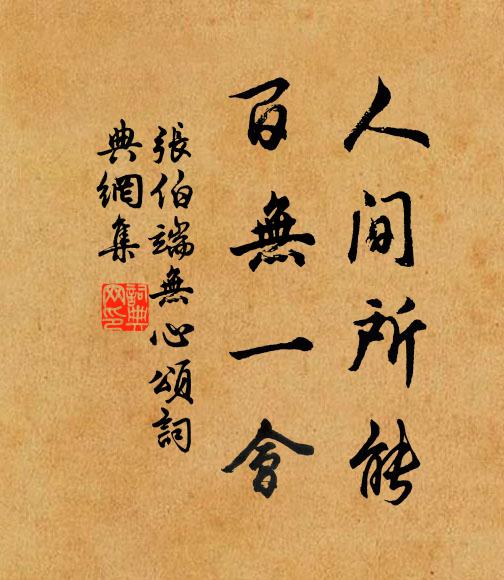 人间所能
百無一會
張伯端無心頌詞
典網集
詞典网印